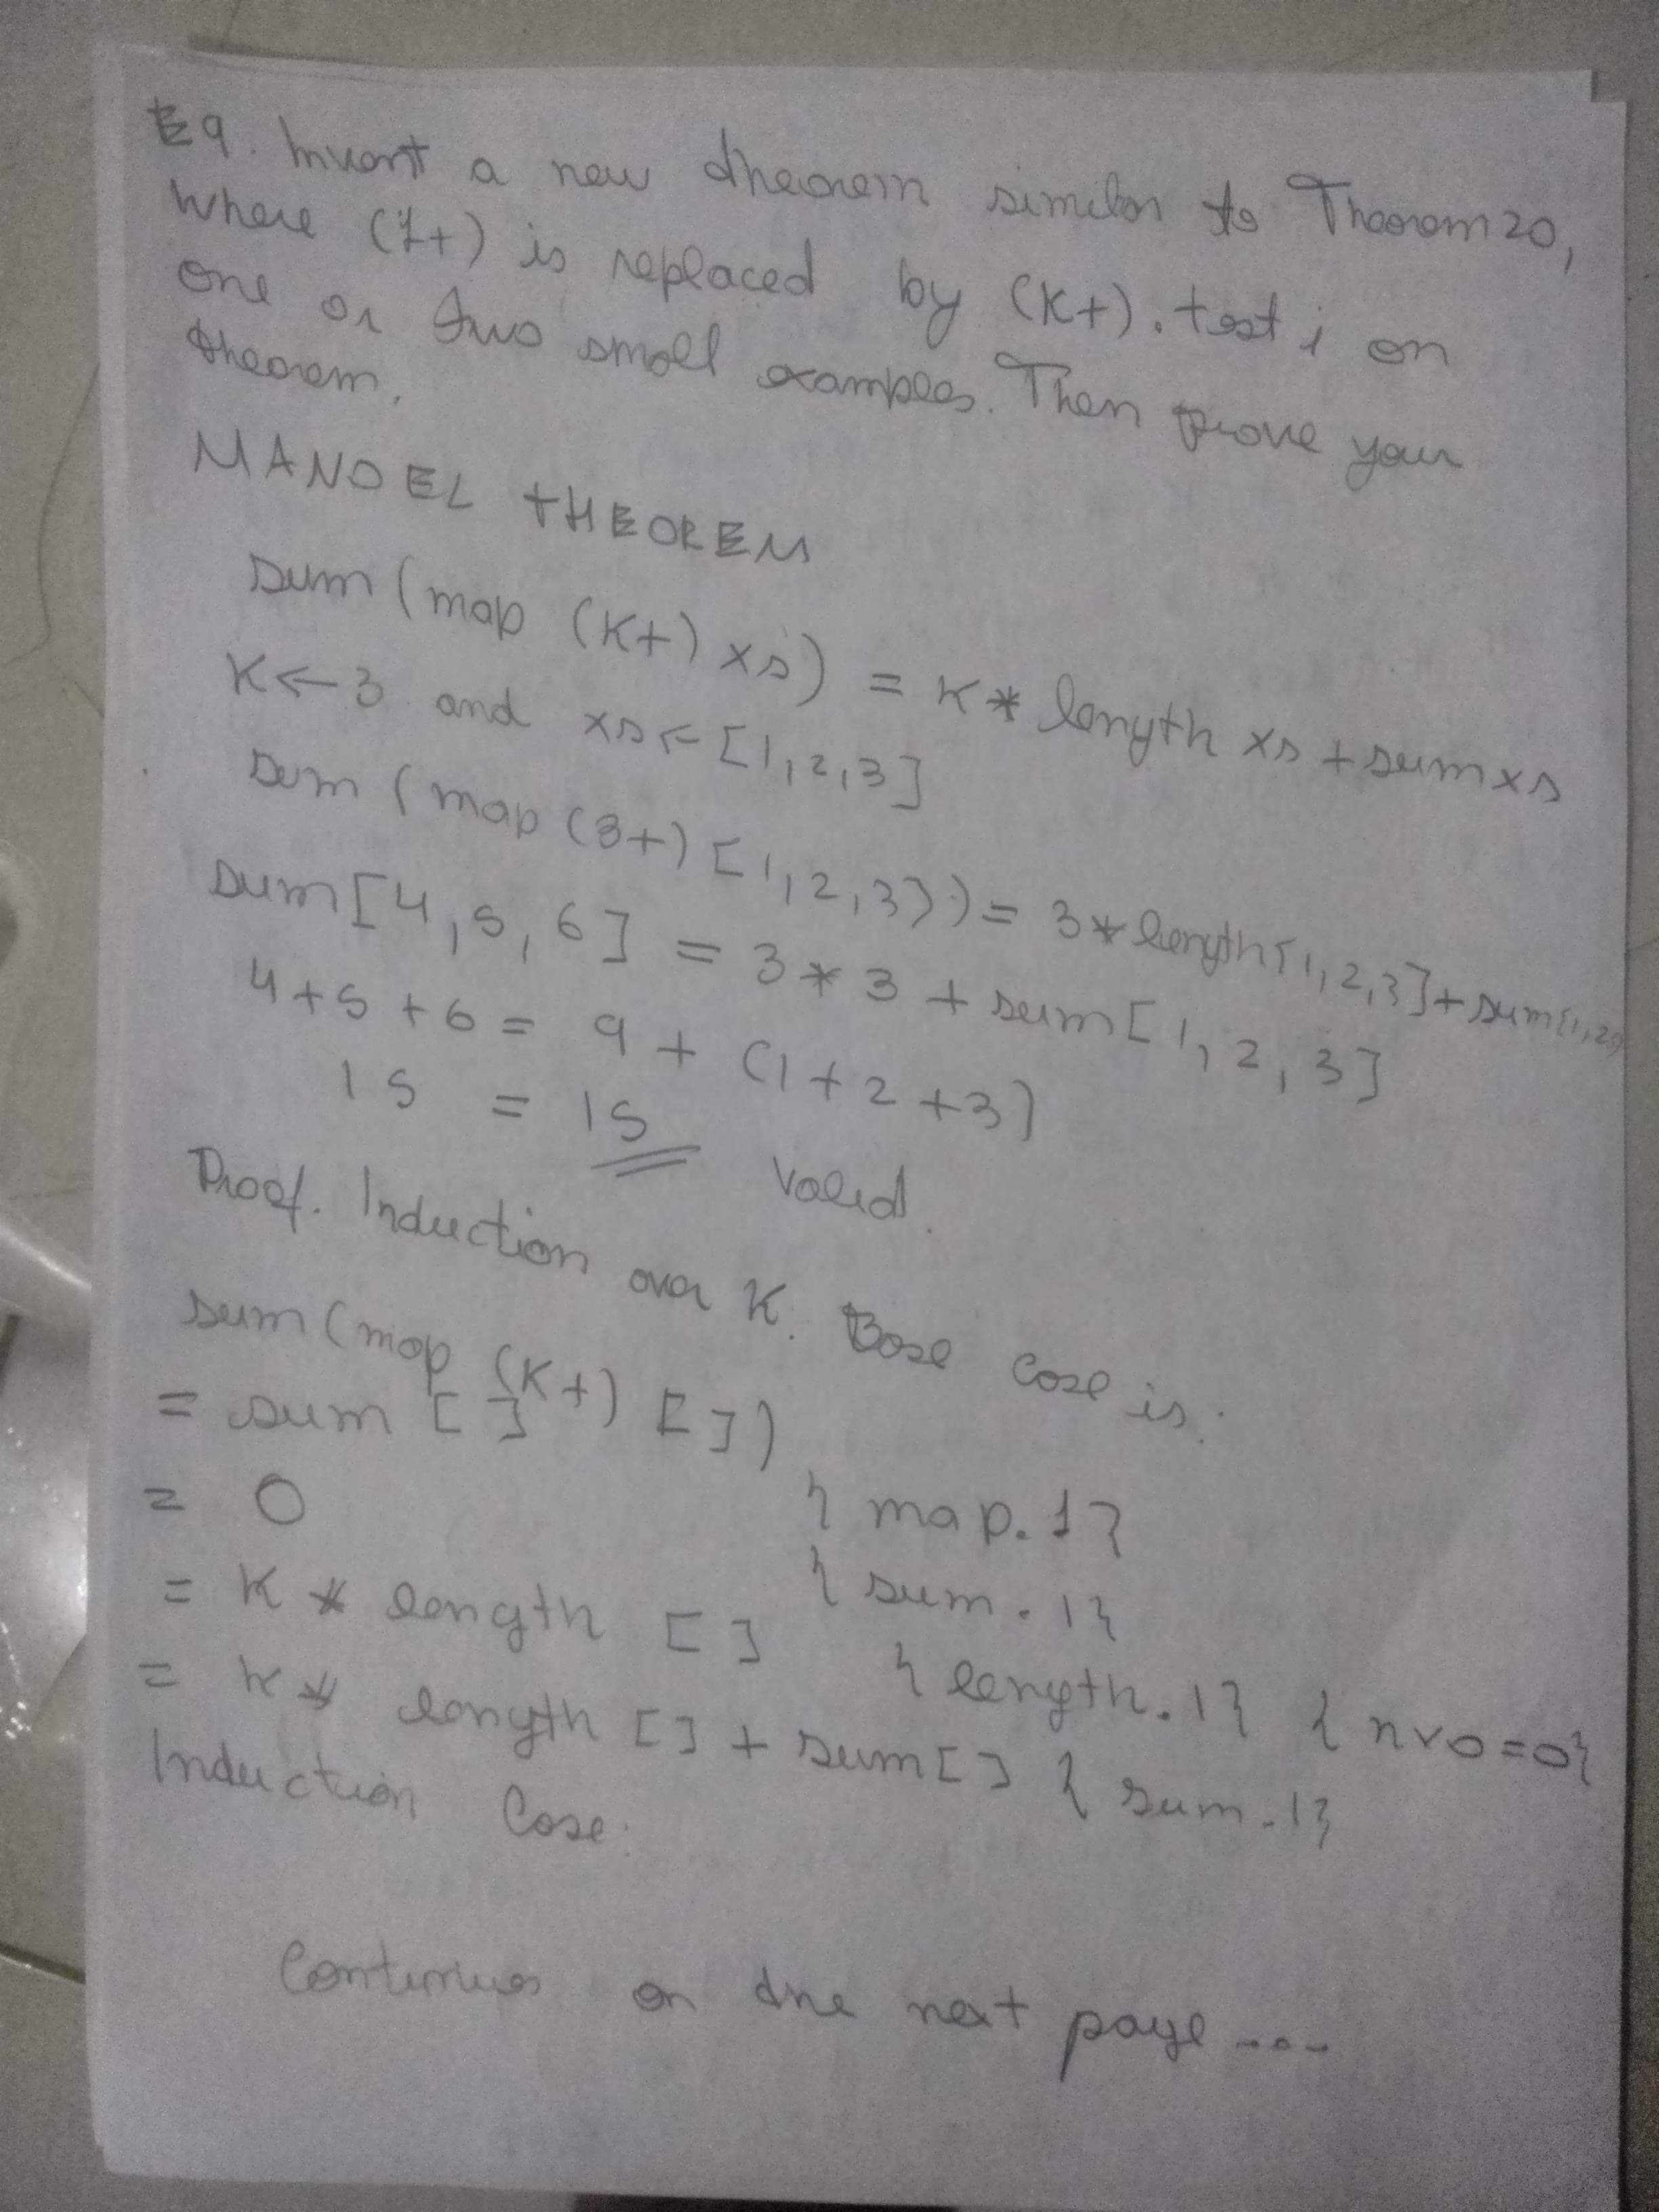 E9. Invent a new theorem similar to Theorem 20,
where (1+) is replaced by (K+). test i on
one or two small examples. Then prove your
theorem.
MANOEL THEOREM
sum (map (K+) xs) = K * length xs + sum xs
K ← 3 and xs ← [1,2,3]
sum (map (3+) [1,2,3]) = 3 * length [1,2,3] + sum [1,2,3]
sum [4,5,6] = 3 * 3 + sum [1,2,3]
4 + 5 + 6 = 9 + (1 + 2 + 3)
15 = 15 Valid.
Proof. Induction over K. Base case is.
sum (map (K+) [])
= sum [] { map.1 }
= 0 { sum.1 }
= K * length [] { length.1 } { nx0=0 }
= K * length [] + sum [] { sum.1 }
Induction Case.
Continues on the next page ...